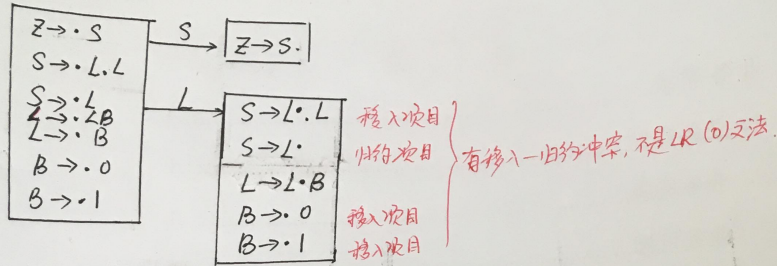 Z→·S
S→·L.L
S→·L
L→·LB
L→·B
B→·0
B→·1
S
Z→S·
L
S→L·.L 移入项目
S→L· 归约项目
L→L·B
B→·0 移入项目
B→·1 移入项目
有移入一归约冲突,不是LR(0)文法.